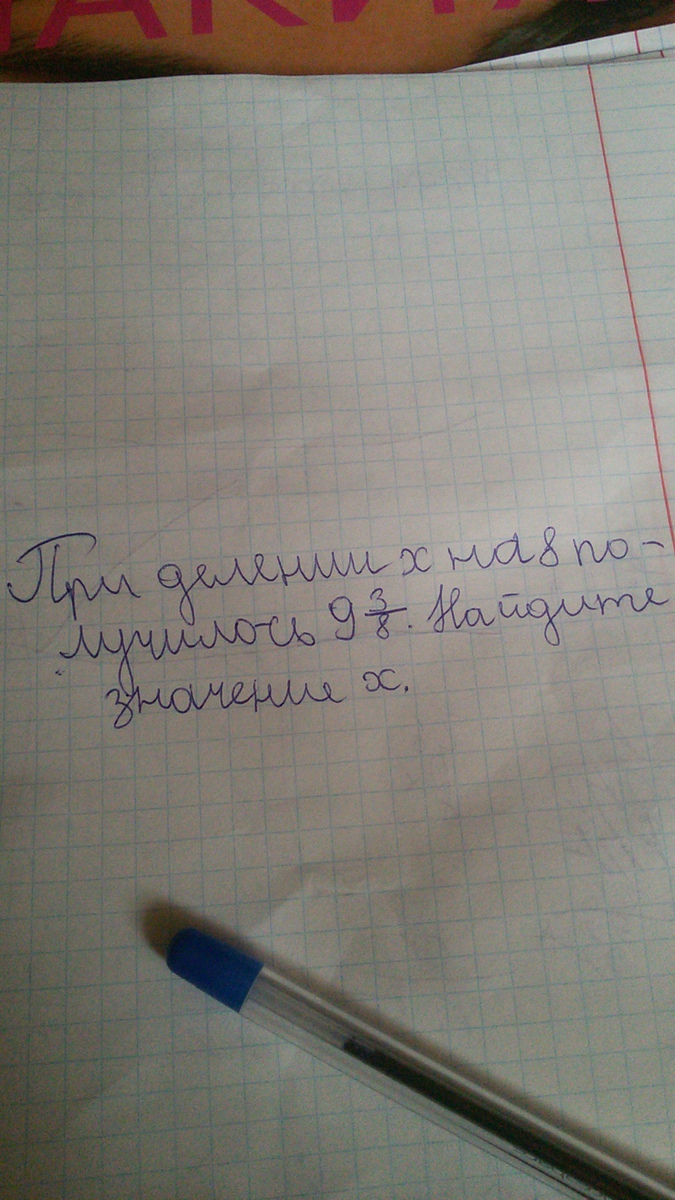 При делении x на 8 по-
лучилось 9 3/8. Найдите
значение x.